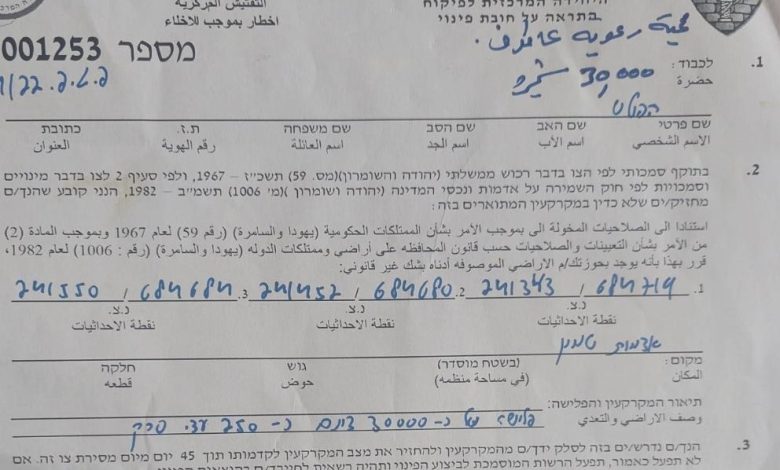 היחידה המרכזית לפיקוח
התראה על חובת פינוי
התפתיש המרכזית
اخطار بموجب للاخلاء
מספר 001253
מחיה רעויה
.1 לכבוד :
حضرة
30,000
שם פרטי שם האב שם הסב שם משפחה ת.ז. כתובת
الاسم الشخصي اسم الأب اسم الجد اسم العائلة رقم الهوية العنوان
.2 בתוקף סמכותי לפי הצו בדבר רכוש ממשלתי (יהודה והשומרון)(מס. 59) תשכ״ז – 1967, ולפי סעיף 2 לצו בדבר מינויים
וסמכויות לפי חוק השמירה על אדמות ונכסי המדינה (יהודה ושומרון )(מ׳ 1006) תשמ״ב – 1982, הנני קובע שהנך/ם
מחזיק/ים שלא כדין במקרקעין המתוארים בזה:
استنادا الى الصلاحيات المخولة الى بموجب الأمر بشأن الممتلكات الحكومية (يهودا والسامرة) (رقم 59) لعام 1967 وبموجب المادة (2)
من الأمر بشأن التعيينات والصلاحيات حسب قانون المحافظه على أراضي وممتلكات الدوله (يهودا والسامرة) (رقم : 1006) لعام 1982,
قرر بهذا بأنه يوجد بحوزتك/م الاراضي الموصوفه أدناه بشك غير قانوني:
.1 241343 / 684719 .2 241452 / 684680 .3 241550 / 684684
נ.צ. נ.צ. נ.צ.
نقطة الاحداثيات نقطة الاحداثيات نقطة الاحداثيات
אדמות
מקום : (בשטח מוסדר) גוש חלקה
المكان (في مساحة منظمه) حوض قطعه
תיאור המקרקעין והפלישה:
وصف الاراضي والتعدي פלישה על כ- 30000 כ- 250 עצי סרק
.3 הנך/ם נדרש/ים בזה לסלק ידך/ם מהמקרקעין ולהחזיר את מצב המקרקעין לקדמותו תוך 45 יום מיום מסירת צו זה. אם
לא תפעל כאמור, תפעל הרשות המוסמכת לביצוע הפינוי